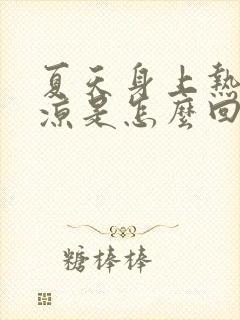 夏天身上熱
涼是怎麼回
糖棒棒